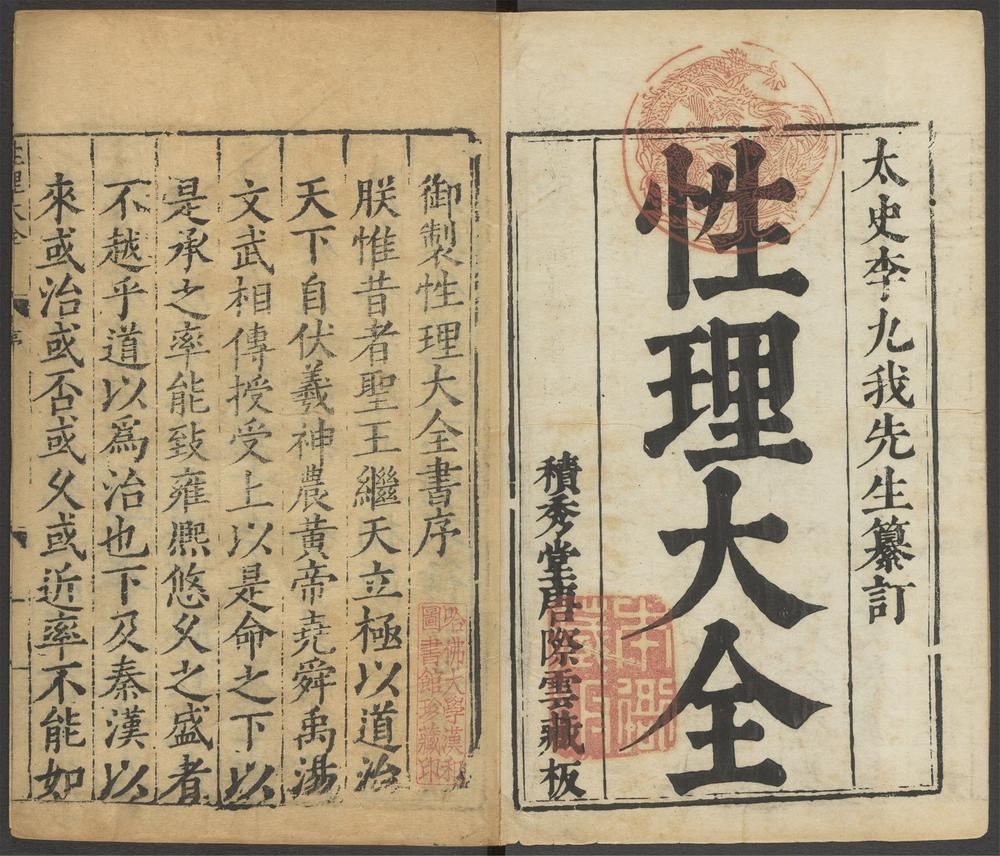 太史李九我先生纂訂
性理大全
積秀堂唐際雲藏板
御製性理大全書序
哈佛大學漢和
圖書館珍藏印
朕惟昔者聖王繼天立極以道治
天下自伏羲神農黃帝堯舜禹湯
文武相傳授受上以是命之下以
是承之率能致雍熈悠久之盛者
不越乎道以爲治也下及秦漢以
來或治或否或久或近率不能如
性理大全
序